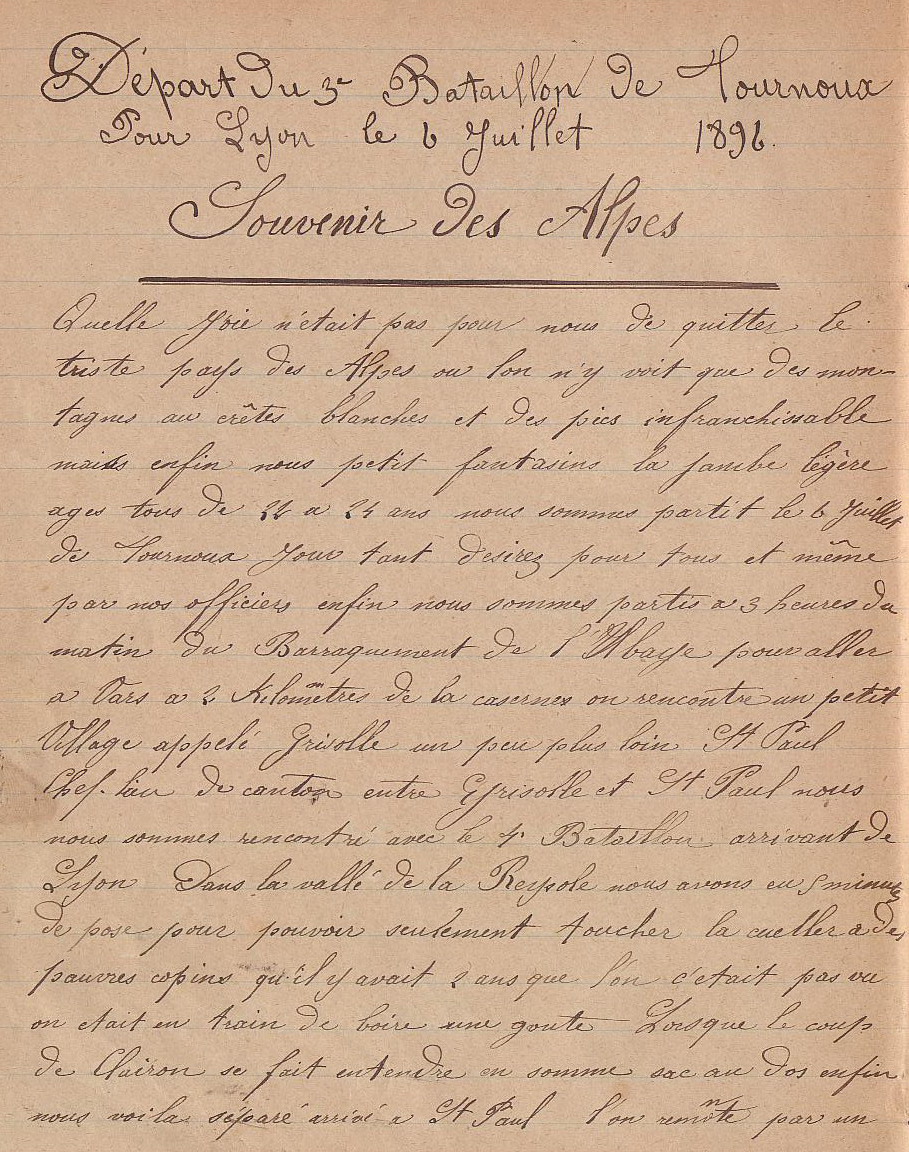 Départ du 3e Bataillon de Tournoux
Pour Lyon le 6 Juillet 1896.
Souvenir des Alpes
Quelle Joie n'était pas pour nous de quitter le
triste pays des Alpes ou lon n'y voit que des mon-
tagnes au crêtes blanches et des pics infranchissable
mais enfin nous petit fantasins la jambe légère
ages tous de 22 a 24 ans nous sommes partit le 6 Juillet
de Tournoux Jour tant desirez pour tous et même
par nos officiers enfin nous sommes partis a 3 heures du
matin du Barraquement de l'Abaye pour aller
a Vars a 2 Kilomètres de la casernes on rencontre un petit
Village appelé Grisolle un peu plus loin St Paul
Chef-lieu de canton entre Grisolle et St Paul nous
nous sommes rencontré avec le 4e Bataillon arrivant de
Lyon Dans la vallé de la Reysole nous avons eu 5 minutes
de pose pour pouvoir seulement toucher la cueller a des
pauvres copins qu'il y avait 2 ans que l'on c'etait pas vu
on etait en train de boire une goute Lorsque le coup
de Clairon se fait entendre en somme sac au dos enfin
nous voila séparé arrivé a St Paul l'on remonte par un